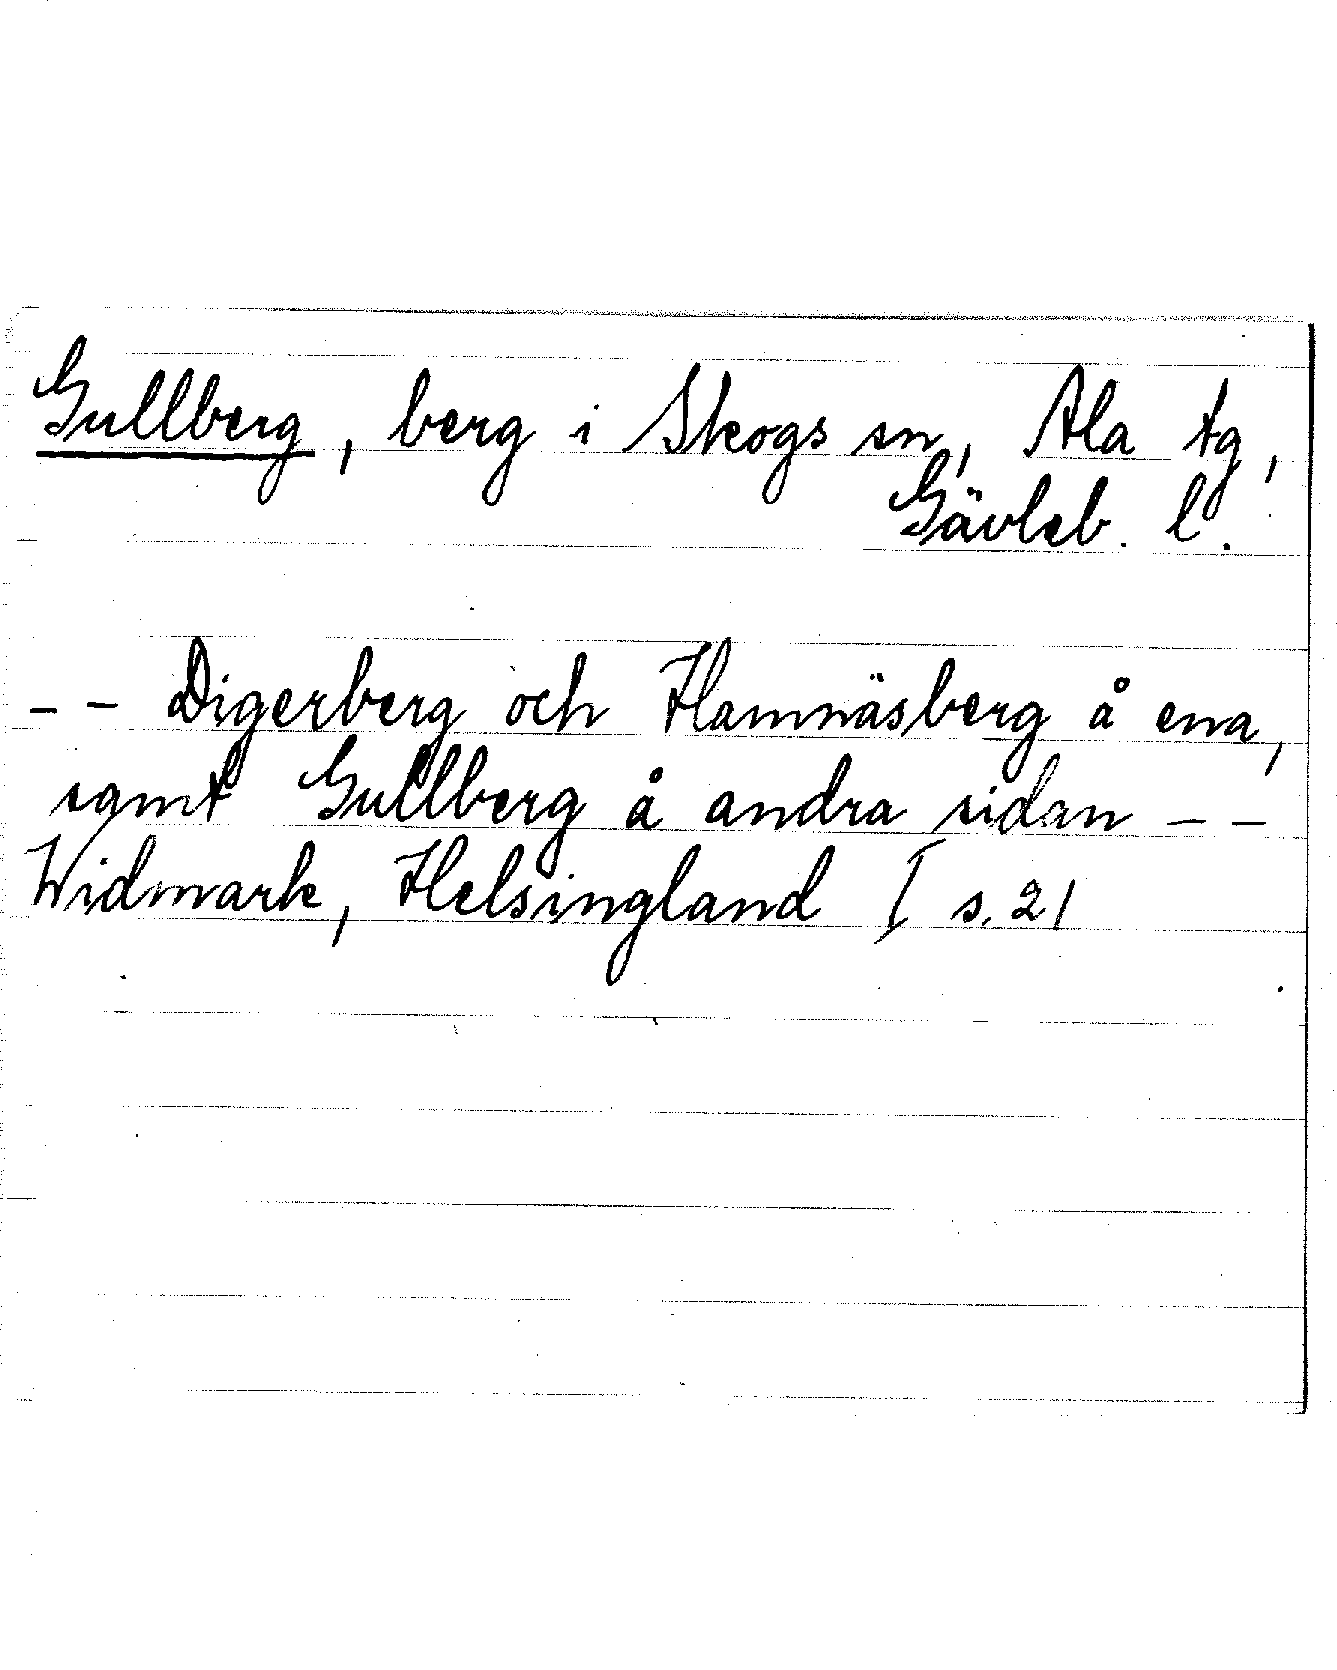 Gullberg, berg i Skogs sn, Ala tg,
Gävleb. l.
-- Digerberg och Hamnäsberg å ena,
samt Gullberg å andra sidan --
Widmark, Helsingland I s. 21